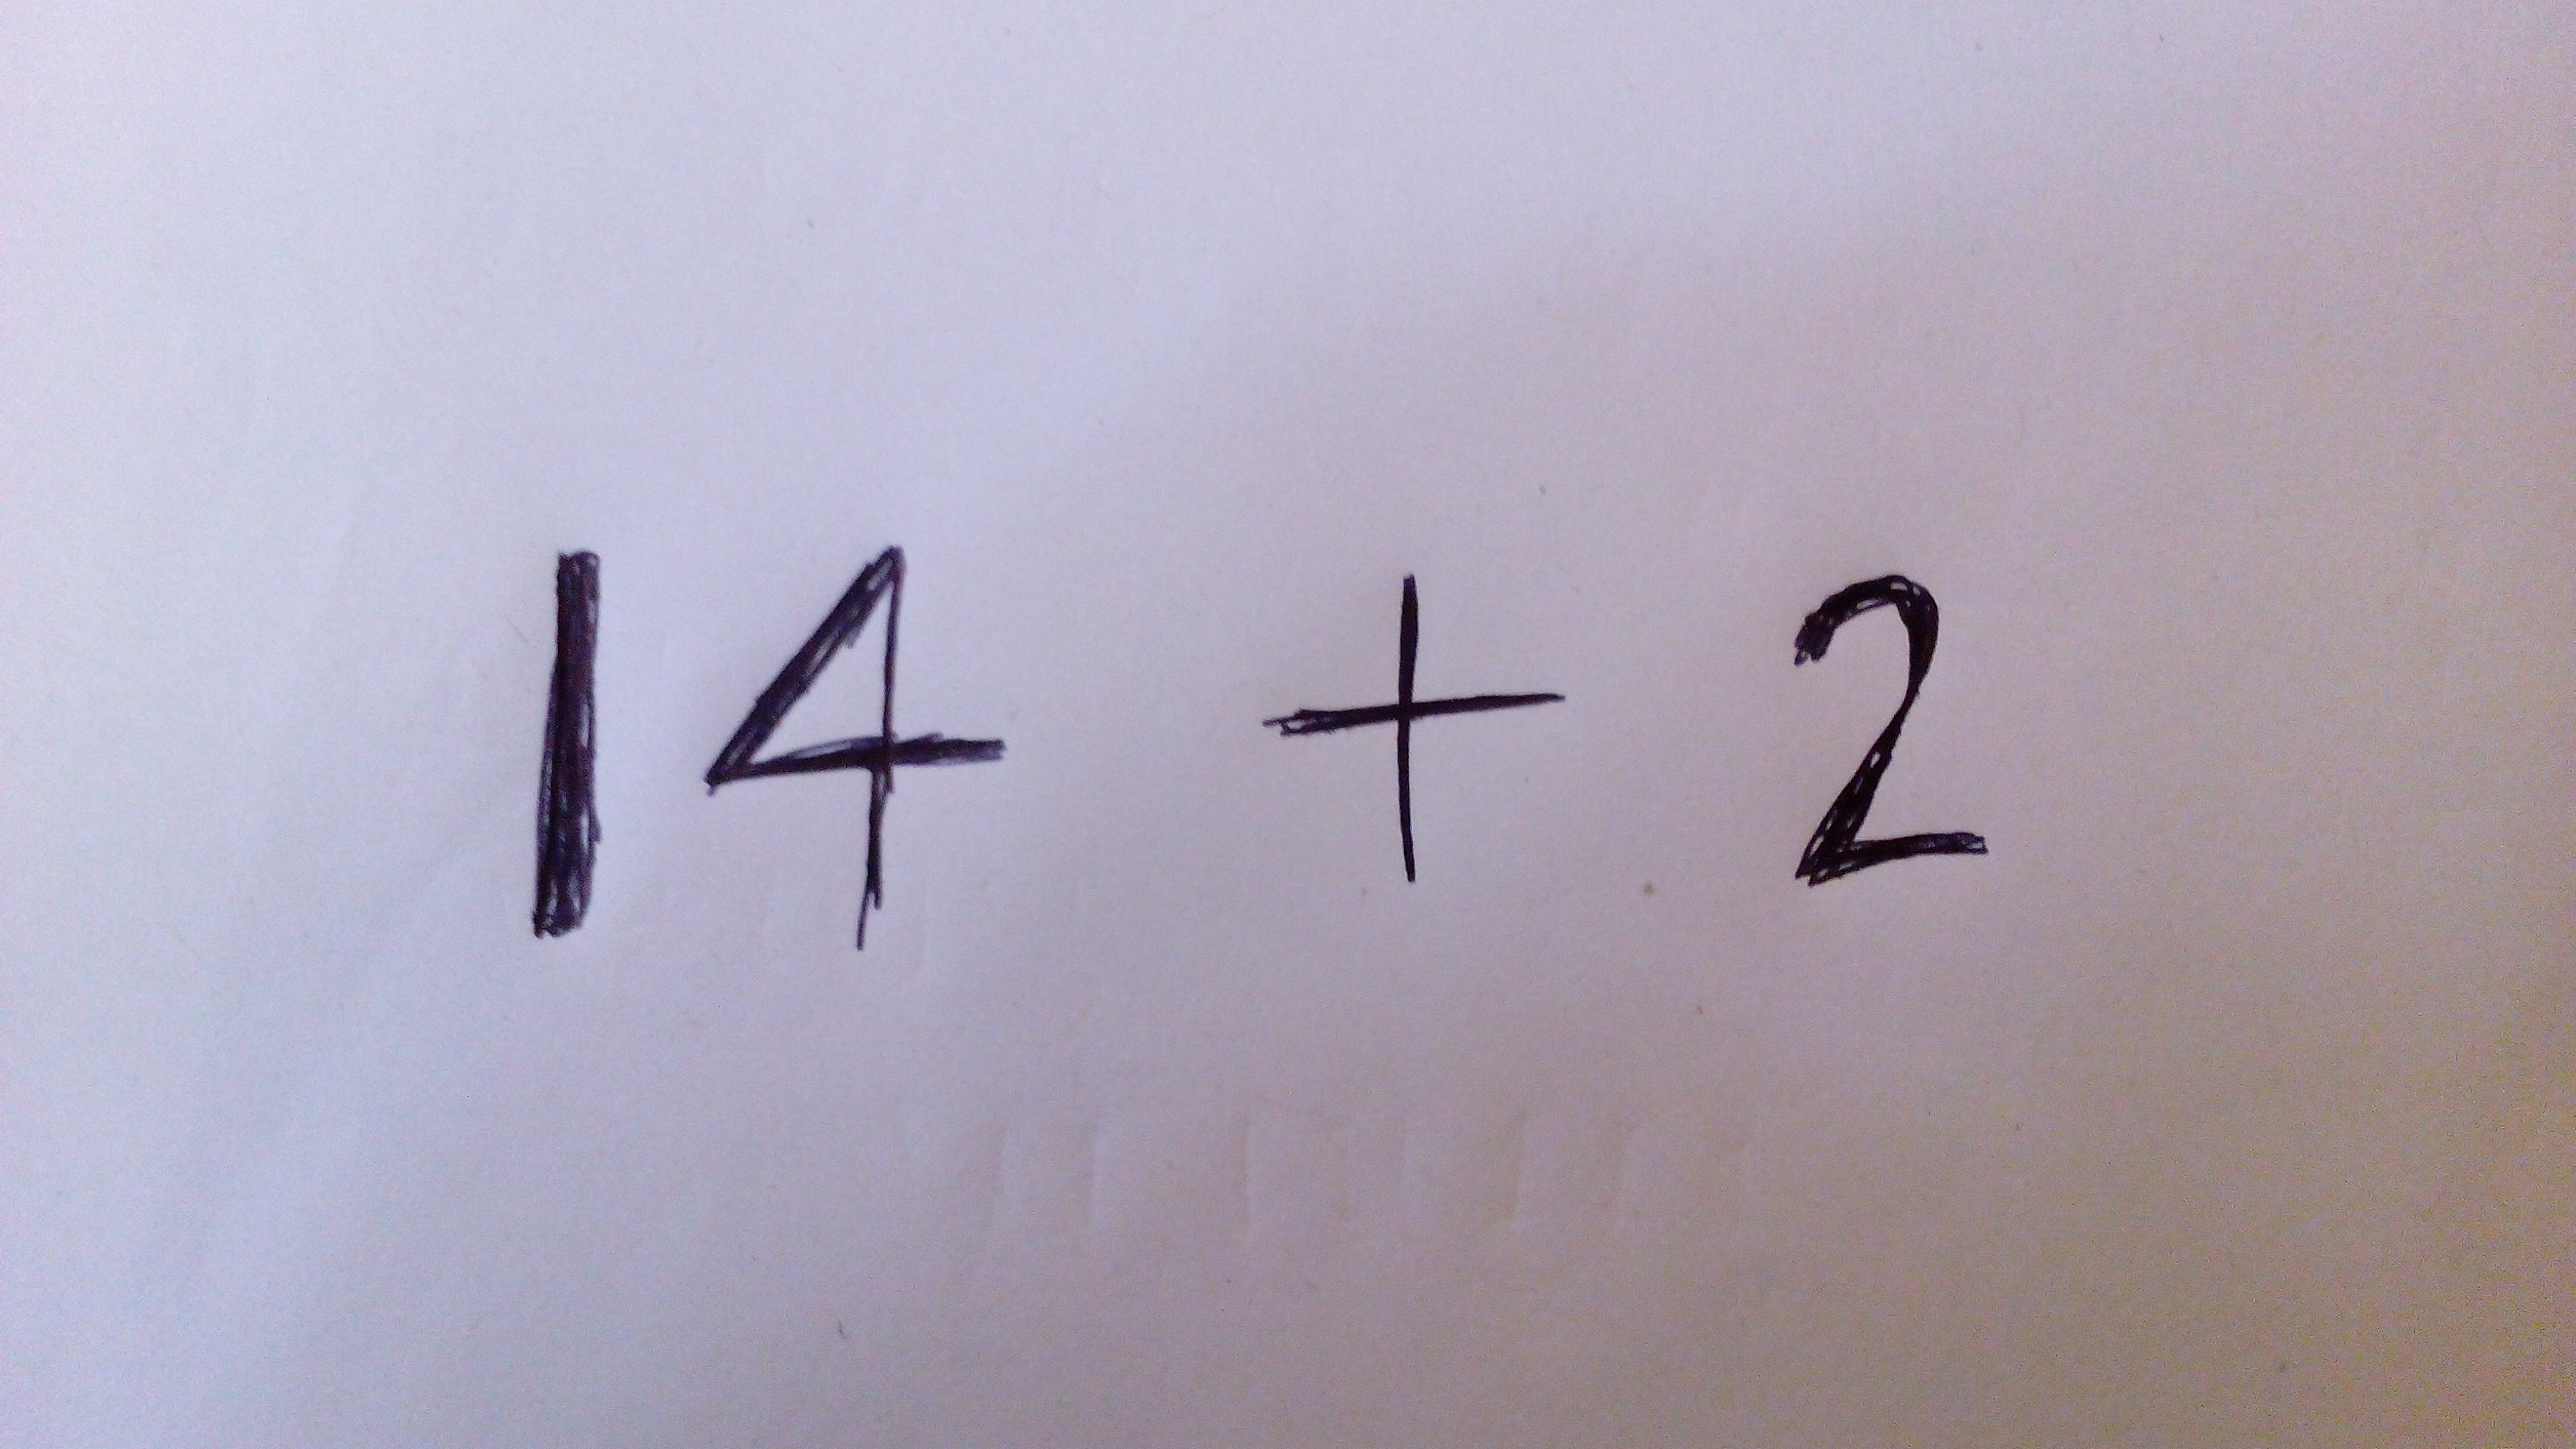 14 + 2